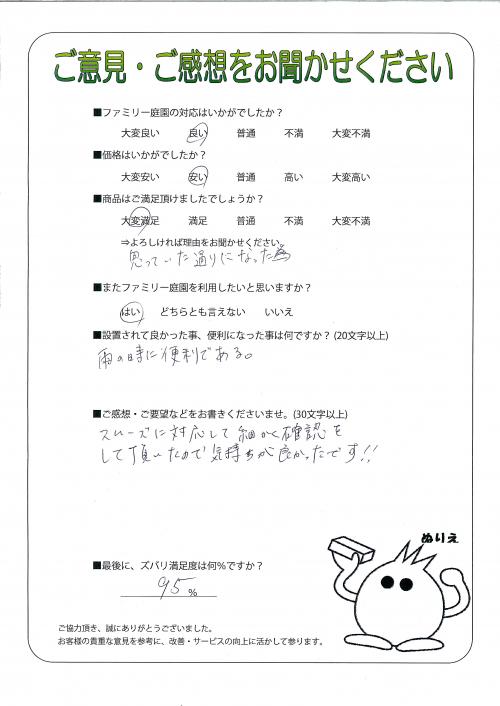 ご意見・ご感想をお聞かせください
■ファミリー庭園の対応はいかがでしたか？
大変良い 良い 普通 不満 大変不満
■価格はいかがでしたか？
大変安い 安い 普通 高い 大変高い
■商品はご満足頂けましたでしょうか？
大変満足 満足 普通 不満 大変不満
⇒よろしければ理由をお聞かせください。
思っていた通りになった為
■またファミリー庭園を利用したいと思いますか？
はい どちらとも言えない いいえ
■設置されて良かった事、便利になった事は何ですか？(20文字以上)
雨の時に便利である。
■ご感想・ご要望などをお書きくださいませ。(30文字以上)
スムーズに対応して細かく確認を
して頂いたので気持ちが良かったです!!
ぬりえ
■最後に、ズバリ満足度は何％ですか？
95%
ご協力頂き、誠にありがとうございました。
お客様の貴重な意見を参考に、改善・サービスの向上に活かして参ります。